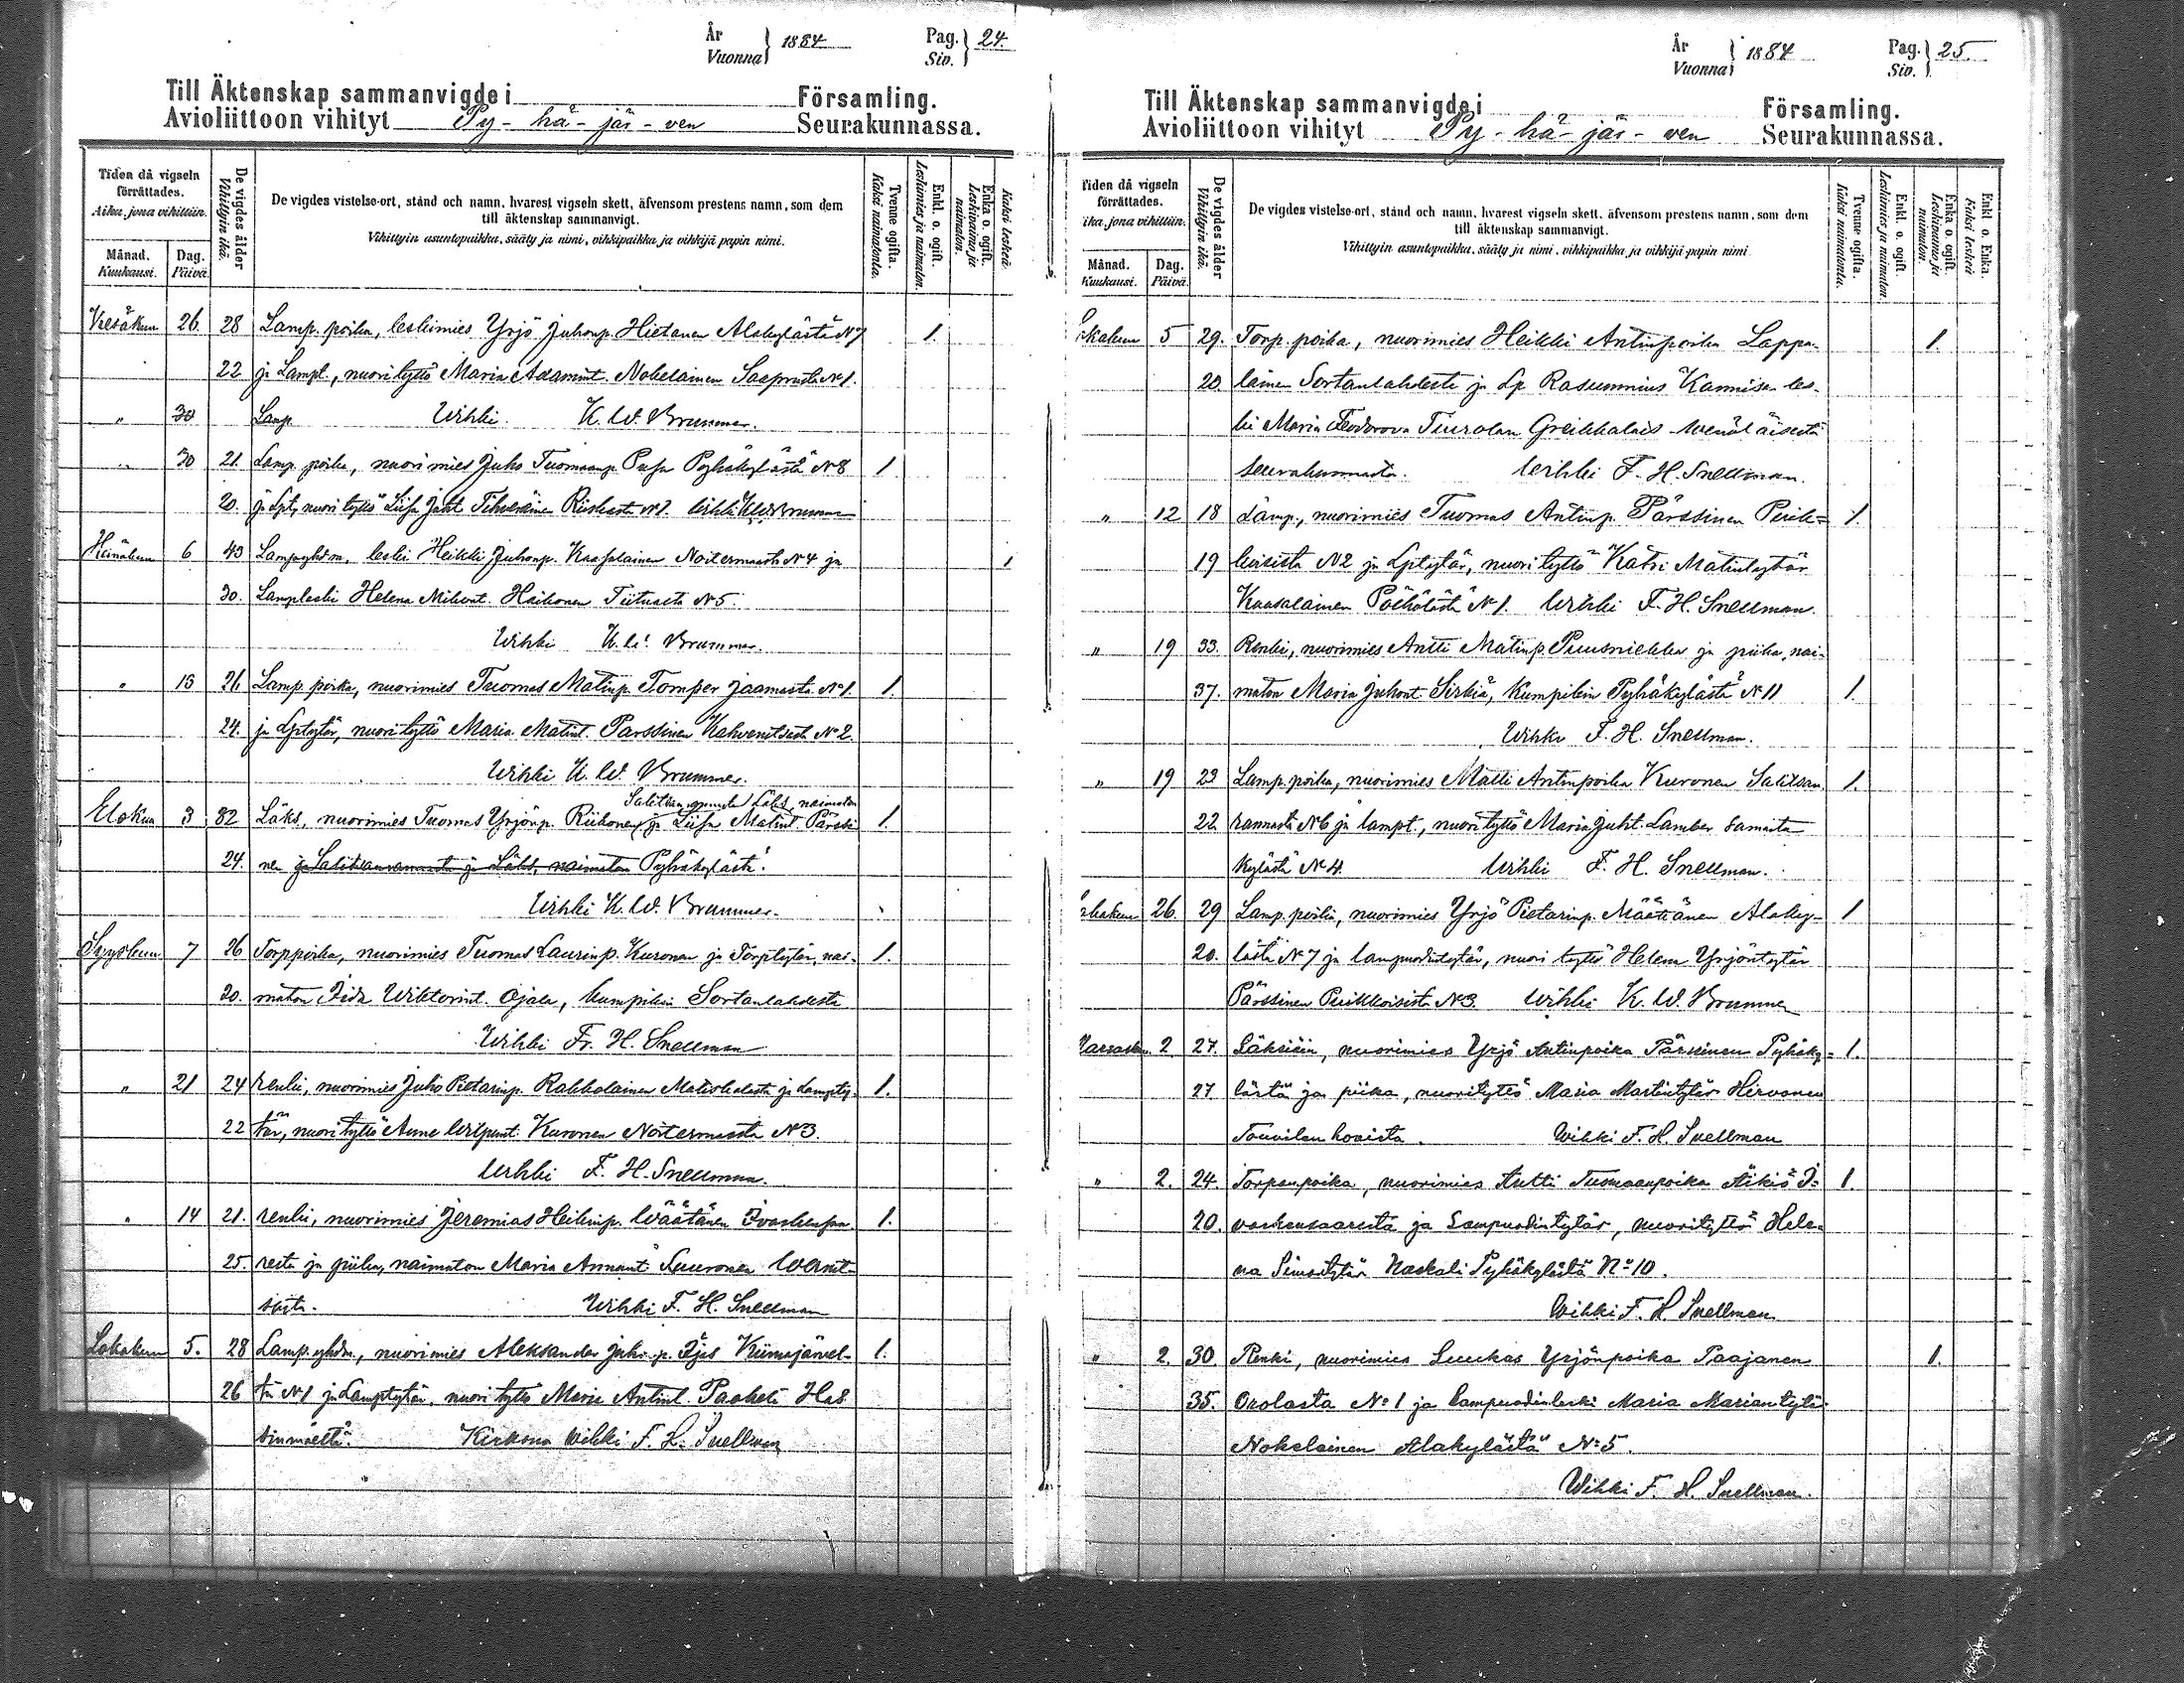 År
Vuonna } 1884
Pag.
Siv. } 24.
Till Äktenskap sammanvigde i Församling.
Avioliittoon vihityt Py-hä-jär-ven Seurakunnassa.
Tiden då vigseln förrättades.
Aika, jona vihittiin.
Månad. Kuukausi.
Dag. Päivä.
De vigdes ålder
Vihittyin ikä.
De vigdes vistelse-ort, stånd och namn, hvarest vigseln skett, äfvensom prestens namn, som dem
till äktenskap sammanvigt.
Vihittyin asuntopaikka, sääty ja nimi, vihkipaikka ja vihkijä papin nimi.
Tvenne ogifta. Kaksi naimatonta.
Enkl. o. ogift. Leskimies ja naimaton.
Enka o. ogift. Leskivaimo ja naimaton.
Kaksi leskeä.
Kesäkuu 26. 28 Lamp. poika, leskimies Yrjö Juhonp. Hietanen Alakylästä N 7 1.
22 ja Lampt., nuori tyttö Maria Adamint. Nokelainen Saaprusta N 1.
" 30 Lamp. Wihki K. W. Brummer.
" 30 21. Lamp. poika, nuori mies Juho Tuomaanp. Pusa Pyhäkylästä N 8 1
20. ja Lpt, nuori tyttö Liisa Juht Riiskasta N 1. Wihki K W Brummer
Heinäkuu 6 43 Lampuhdm, leski Heikki Juhonp. Kaasalainen Noitermaasta N 4 ja 1
30. Lampleski Helena Mikont. Haikonen Tiitua N 5.
Wihki K. W. Brummer.
" 13 21. Lamp. poika, nuorimies Tuomas Matinp. Tomper Jaamasta N 1. 1.
24. ja Lptytär, nuori tyttö Maria Matint. Parssinen Kahvenitsasta N 2.
Wihki K. W. Brummer.
Salitsanrannasta Läks, naimaton
Elokuu 3 32 Läks, nuorimies Tuomas Yrjönp. Riikonen ja Liisa Matint. Pärssi 1.
24. nen ja Salitsanrannasta ja Läks, naimaton Pyhäkylästä.
Wihki K. W. Brummer.
Syyskuu 7 26 Torppoika, nuorimies Tuomas Laurinp. Kuronen ja Torptytär, nai- 1.
20. maton Iida Wiktorint. Ojala, kumpikin Sortanlahdesta
Wihki Fr. H. Snellman
" 21 24 renki, nuorimies Juho Pietarinp. Rakkolainen Matiskalasta ja Lampty- 1.
22 tär, nuori tyttö Anna Kuronen Noitermaasta N 3.
Wihki F. H. Snellman.
" 14 21. renki, nuorimies Jeremias Heikinp. Wäätänen Ivaskensaa- 1.
25. resta ja piika, naimaton Maria Annant Luuronen
Wihki F. H. Snellman
Lokakuu 5. 28 Lamp. yhdm, nuorimies Aleksander Juho p. Äjäs Kiimajärvel- 1.
26 tä N 1 ja Lamptytär, nuori tyttö Maria Antint. Paakeli Has
sinmäeltä. Kirkossa Wihki F. H. Snellman
År
Vuonna } 1884
Pag.
Siv. } 25.
Till Äktenskap sammanvigde i Församling.
Avioliittoon vihityt Py-hä-jär-ven Seurakunnassa.
Tiden då vigseln förrättades.
ika, jona vihittiin.
Månad. Kuukausi.
Dag. Päivä.
De vigdes ålder
Vihittyin ikä.
De vigdes vistelse-ort, stånd och namn, hvarest vigseln skett, äfvensom prestens namn, som dem
till äktenskap sammanvigt.
Vihittyin asuntopaikka, sääty ja nimi, vihkipaikka ja vihkijä papin nimi
Tvenne ogifta. Kaksi naimatonta.
Enkl. o. ogift. Leskimies ja naimaton.
Enka o. ogift. Leskivaimo ja naimaton.
Enkl o. Enka. Kaksi leskeä
okakuu 5 29. Torp. poika, nuorimies Heikki Antinpoika Lappa- 1.
20. lainen Sortanlahdesta ja Lp. Rasumnius Kannisen les-
ki Maria Feodorova Tiurolan Greikkalais-wenäläisestä
seurakunnasta. Wihki F. H. Snellman.
" 12 18 Lamp., nuorimies Tuomas Antinp. Pärssinen Puik= 1.
19 koisista N 2 ja Lptytär, nuori tyttö Katri Matintytär
Kaasalainen N 1. Wihki F. H. Snellman.
" 19 33. Renki, nuorimies Antti Matinp. Puusniekka ja piika, nai-
37. maton Maria Juhont Sirkiä, Kumpikin Pyhäkylästä N 11 1.
Wihki F. H. Snellman.
" 19 23 Lamp. poika, nuorimies Matti Antinpoika Kuronen Salitsan 1.
22 rannasta N 6 ja lampt., nuori tyttö Maria Juht. Lamber samasta
kylästä N 4. Wihki F. H. Snellman.
26. 29 Lamp. poika, nuorimies Yrjö Pietarinp. Määttänen Alaky- 1
20. lästä N 7 ja lampuodintytär, nuori tyttö Helena Yrjöntytär
Pärssinen Puikkoisista N 3. Wihki K. W. Brummer
Marraskuu 2 27. Läksiäin, nuorimies Yrjö Antinpoika Pärssinen Pyhäky= 1.
27 lästä ja piika, nuorityttö Maria Martintytär Hirvonen
Touvilan hovista. Wihki F. H. Snellman
" 2. 24. Torpanpoika, nuorimies Antti Tuomaanpoika Äikiö I= 1.
20. vaskensaaresta ja Lampuodintytär, nuorityttö Hele=
na Simontytär Naskali Pyhäkylästä No 10.
Wihki F. H Snellman
" 2. 30. Renki, nuorimies Luukas Yrjönpoika Paajanen 1.
35. Orolasta No 1 ja lampuodinleski Maria Mariantytär
Nokelainen Alakylästä No 5.
Wihki F. H. Snellman.